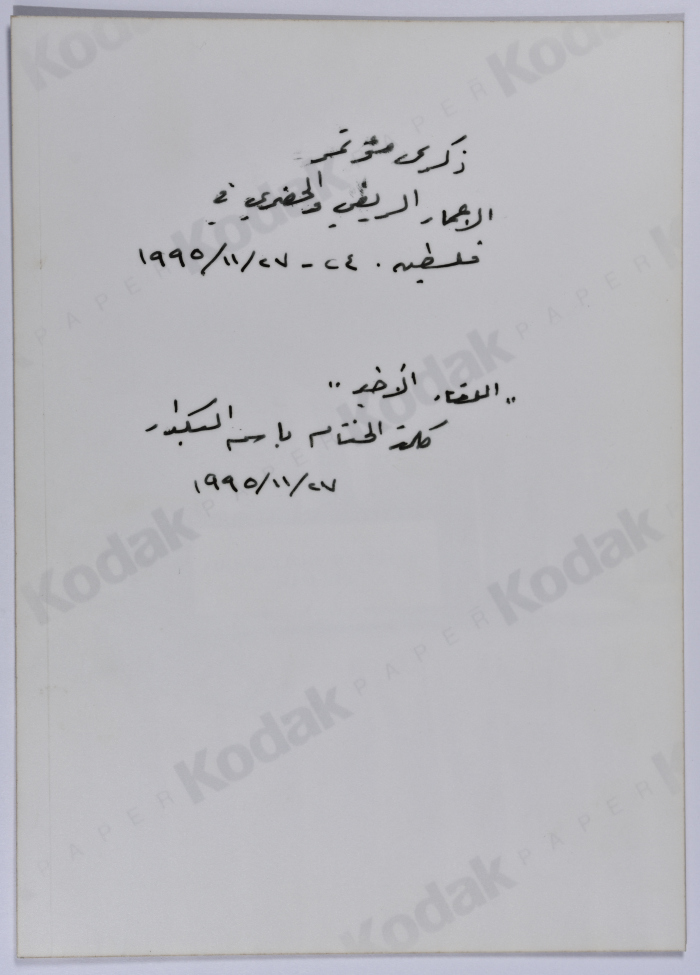 ذكرى مؤتمر
الاعمار الريفي والحضري في
فلسطين. ٢٤ - ٢٧/١١/١٩٩٥
"اللقاء الأخير"
كلمة الختام باسم
٢٧/١١/١٩٩٥
Kodak PAPER